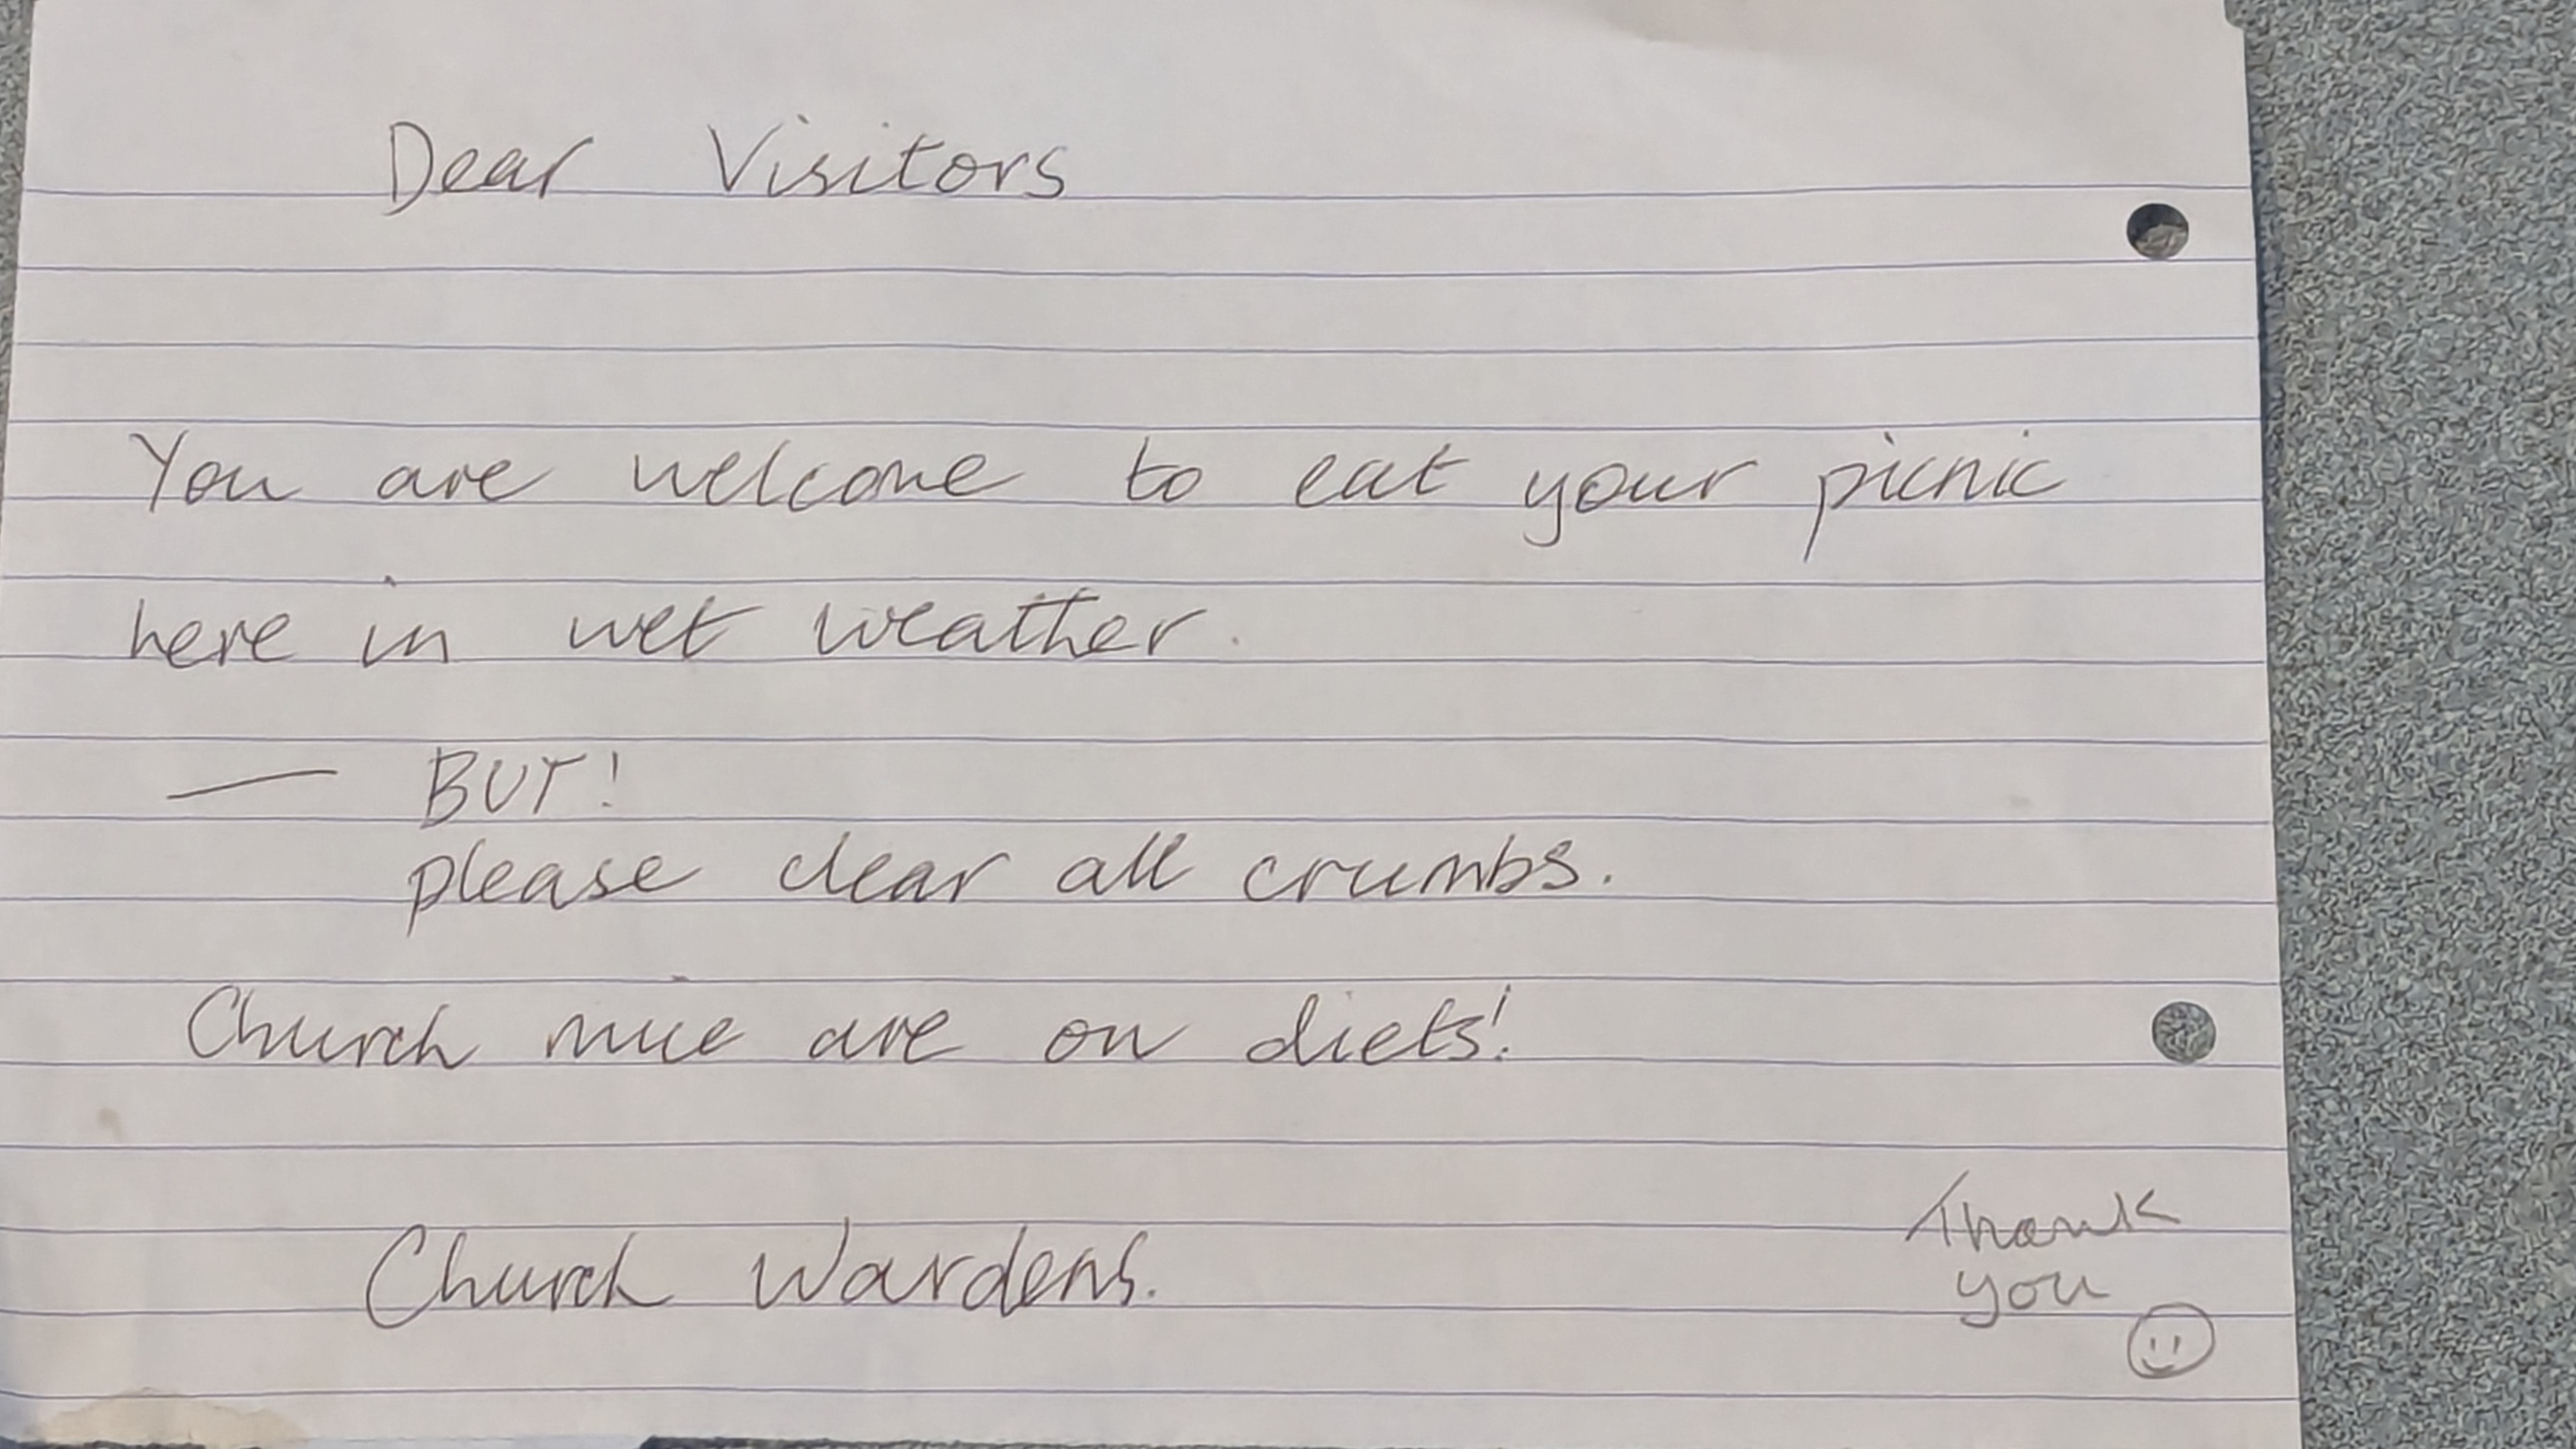 Dear Visitors
You are welcome to eat your picnic
here in wet weather.
— BUT!
please clear all crumbs.
Church mice are on diets!
Church Wardens.
Thank
you